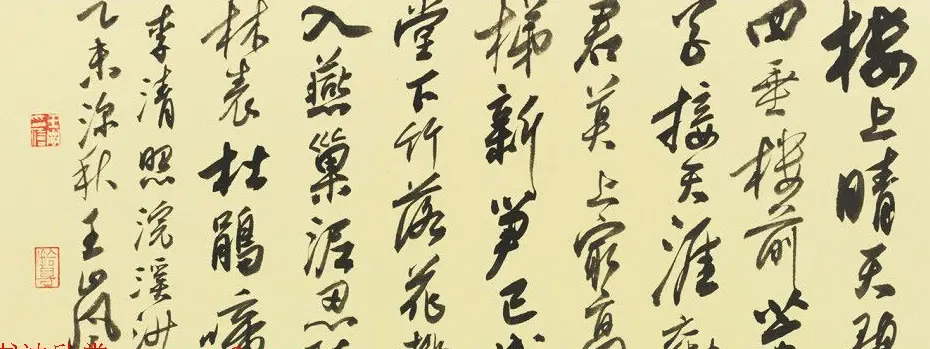 楼上晴天碧
四垂楼前芳
草接天涯劝
君莫上最高
梯新笋已成
堂下竹落花
入燕巢泥忍
林表杜鹃啼
李清照浣溪沙
乙未深秋王岚